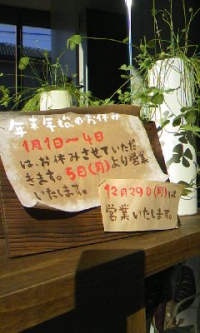 年末年始のお休み
1月1日〜4日
は、お休みさせていただ
きます。5日(月)より営業
いたします。
12月29日(月)は
営業いたします。